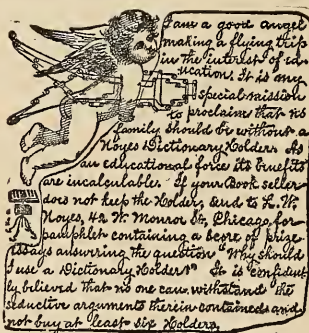 I am a good angel
making a flying trip
in the interest of ed-
ucation. It is my
special mission
to proclaim that no
family should be without a
Noyes Dictionary Holder. As
an educational force its benefits
are incalculable. If your Book seller
does not keep the Holder, send to L. W.
Noyes, 42 W. Monroe St, Chicago, for
pamphlet containing a score of prize
essays answering the question "Why should
I use a Dictionary Holder?" It is confident-
ly believed that no one can withstand the
seductive arguments therein contained and
not buy at least six Holders.